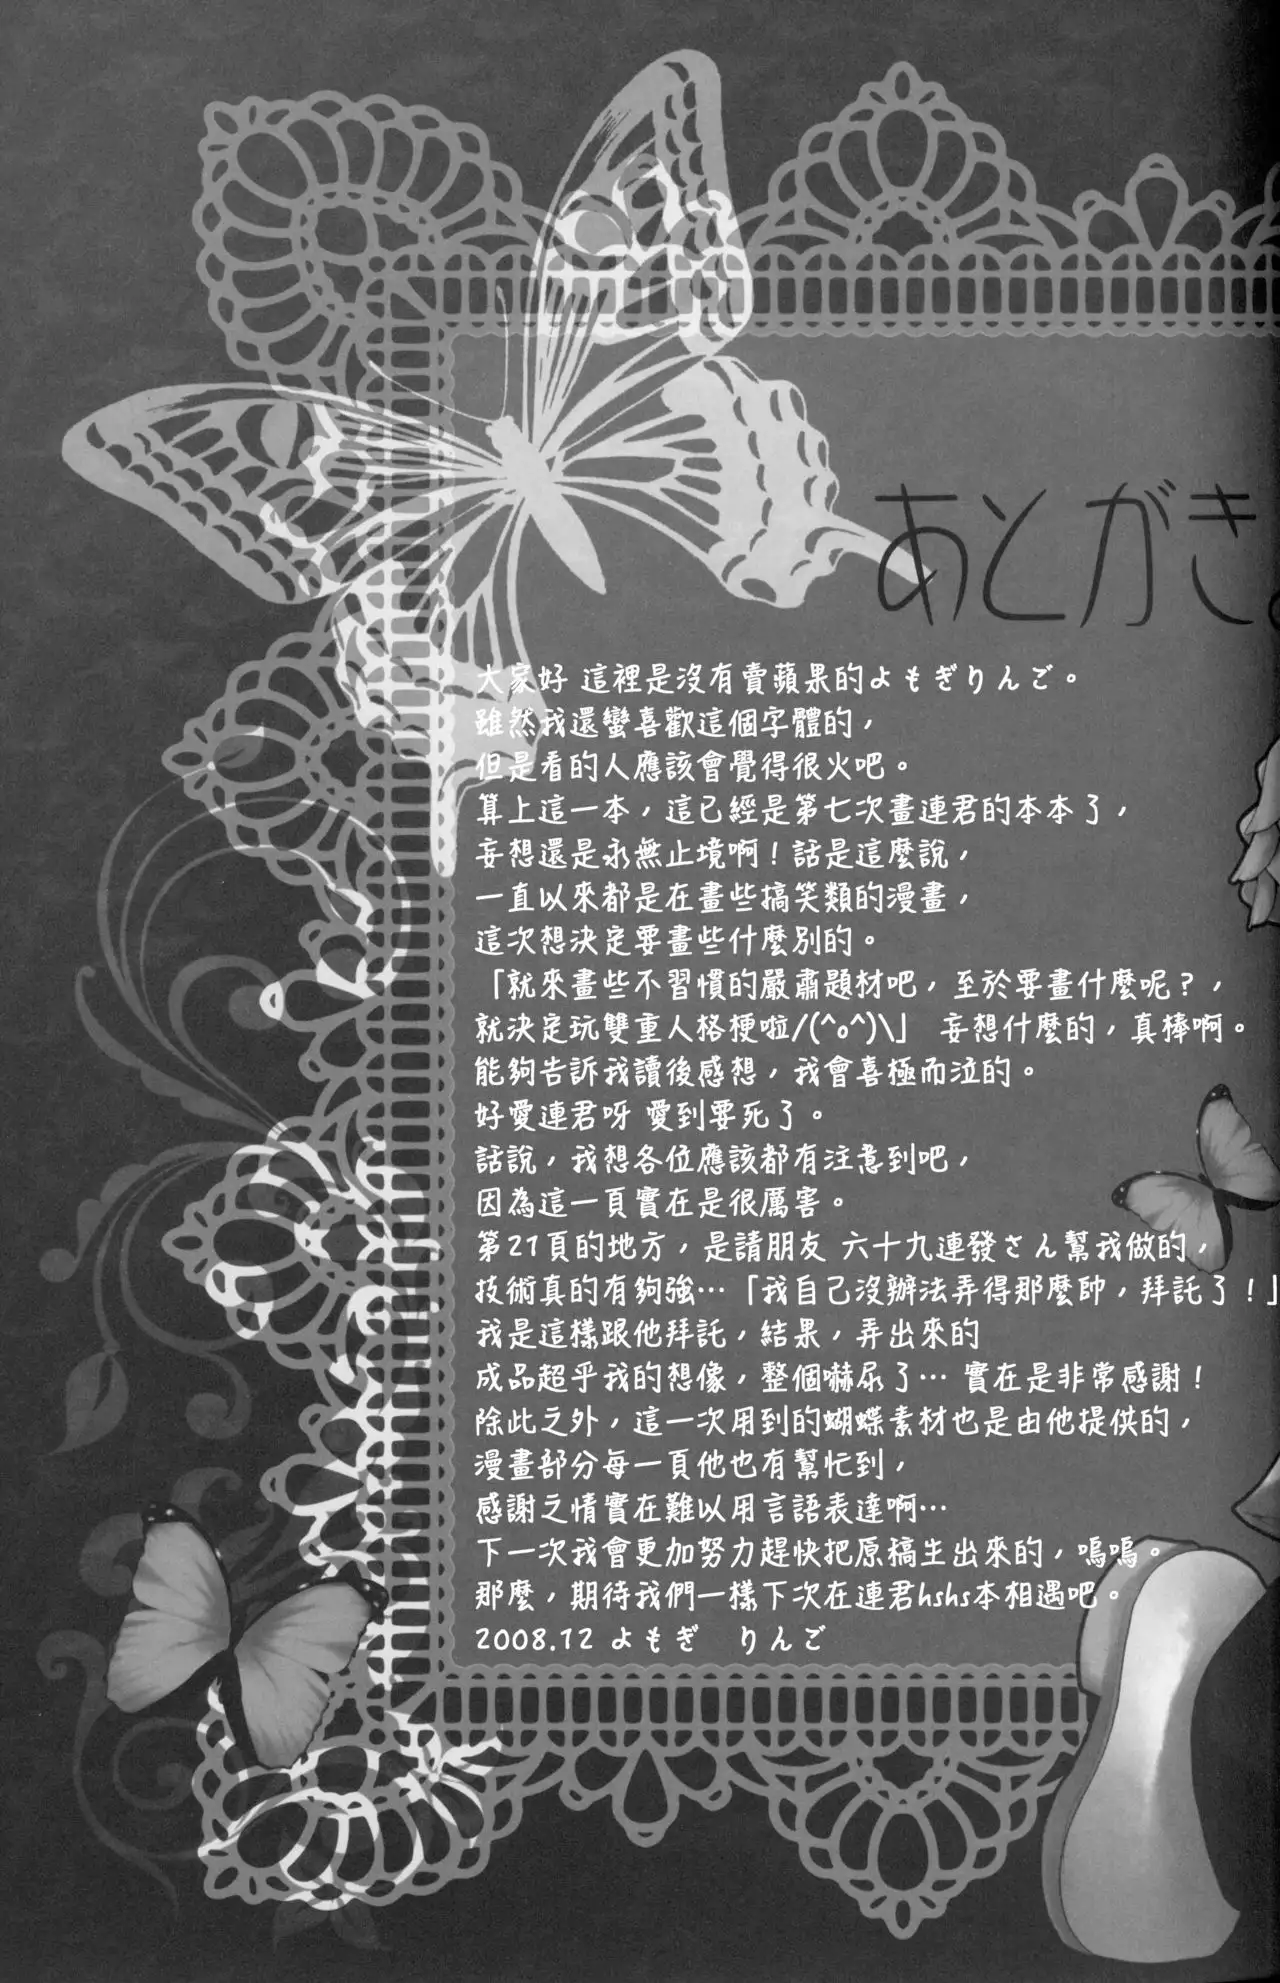 あとがき
大家好 這裡是沒有賣蘋果的よもぎりんご。
雖然我還蠻喜歡這個字體的，
但是看的人應該會覺得很火吧。
算上這一本，這已經是第七次畫連君的本本了，
妄想還是永無止境啊！話是這麼說，
一直以來都是在畫些搞笑類的漫畫，
這次想決定要畫些什麼別的。
「就來畫些不習慣的嚴肅題材吧，至於要畫什麼呢？，
就決定玩雙重人格梗啦/(^o^)\」 妄想什麼的，真棒啊。
能夠告訴我讀後感想，我會喜極而泣的。
好愛連君呀 愛到要死了。
話說，我想各位應該都有注意到吧，
因為這一頁實在是很厲害。
第21頁的地方，是請朋友 六十九連發さん幫我做的，
技術真的有夠強…「我自己沒辦法弄得那麼帥，拜託了！」
我是這樣跟他拜託，結果，弄出來的
成品超乎我的想像，整個嚇尿了… 實在是非常感謝！
除此之外，這一次用到的蝴蝶素材也是由他提供的，
漫畫部分每一頁他也有幫忙到，
感謝之情實在難以用言語表達啊…
下一次我會更加努力趕快把原稿生出來的，嗚嗚。
那麼，期待我們一樣下次在連君hshs本相遇吧。
2008.12 よもぎ　りんご